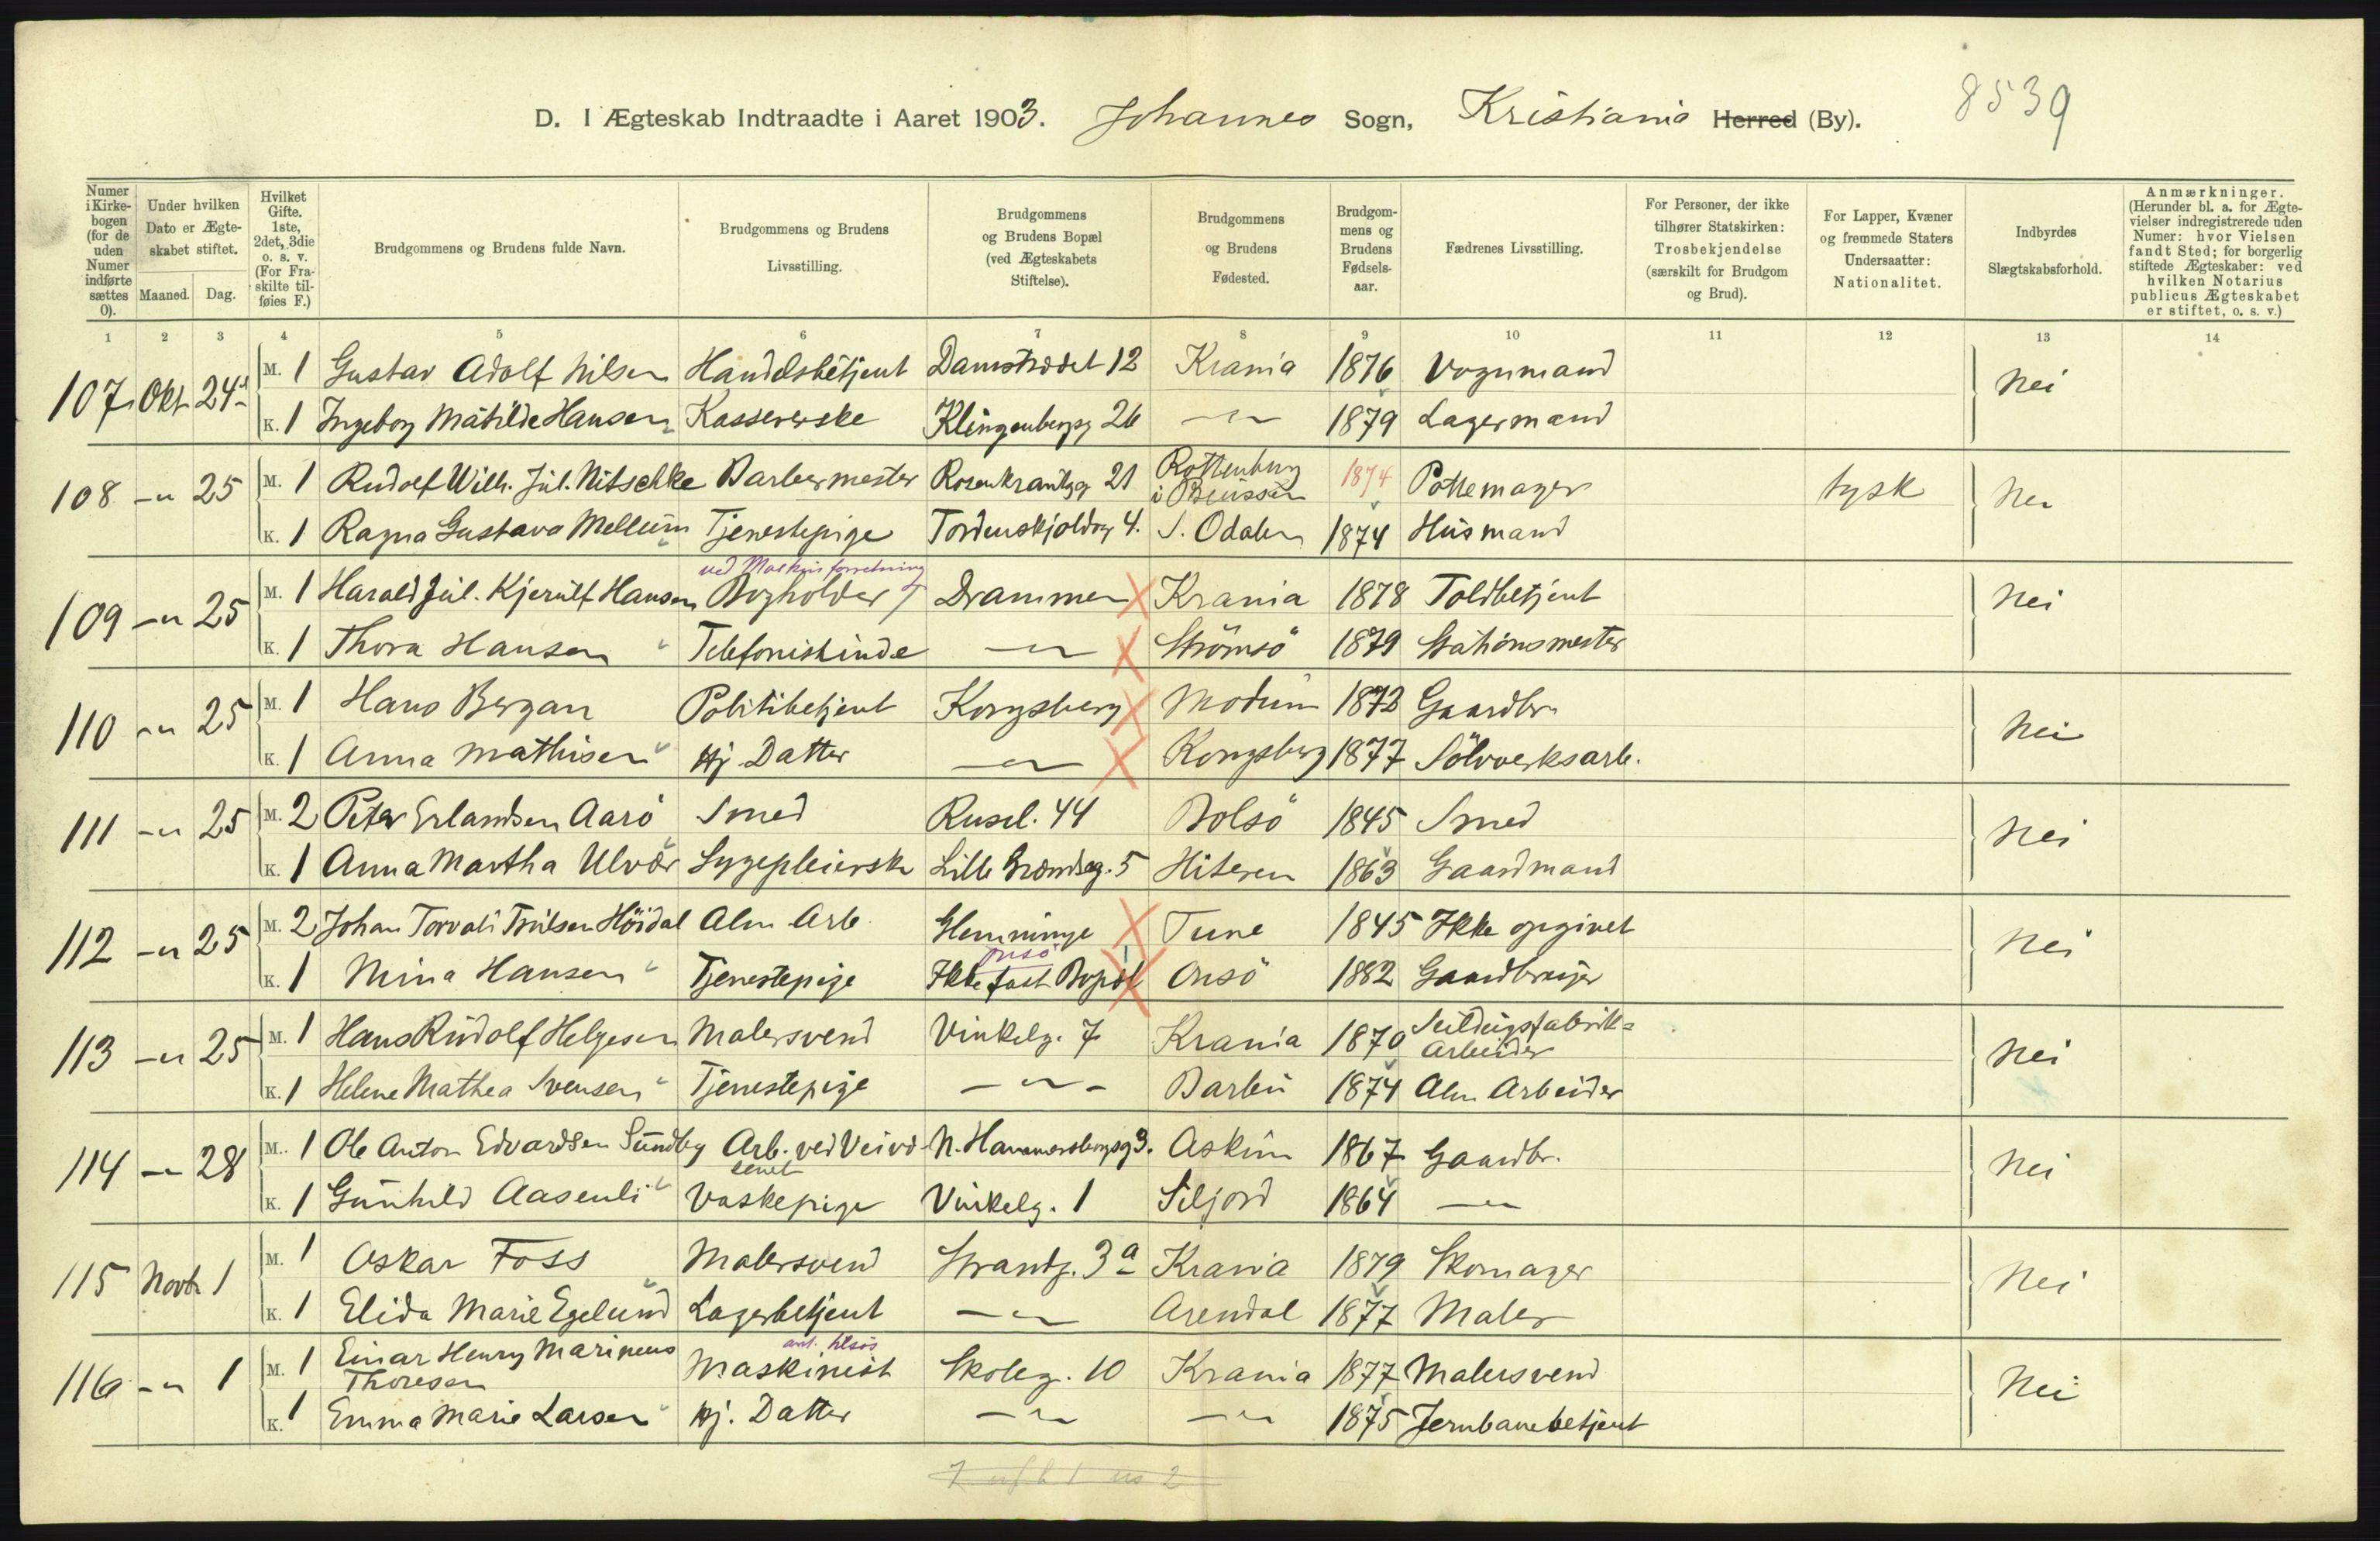 8539
D. I Ægteskab Indtraadte i Aaret 1903. Johannes Sogn, Kristiania Herred (By).
Numer i Kirke-bogen (for de uden Numer indførte sættes 0).
Under hvilken Dato er Ægte-skabet stiftet.
Maaned. Dag.
Hvilket Gifte. 1ste, 2det, 3die o. s. v. (For Fra-skilte til-føies F.)
Brudgommens og Brudens fulde Navn.
Brudgommens og Brudens Livsstilling.
Brudgommens og Brudens Bopæl (ved Ægteskabets Stiftelse).
Brudgommens og Brudens Fødested.
Brudgom-mens og Brudens Fødsels-aar.
Fædrenes Livsstilling.
For Personer, der ikke tilhører Statskirken: Trosbekjendelse (særskilt for Brudgom og Brud).
For Lapper, Kvæner og fremmede Staters Undersaatter: Nationalitet.
Indbyrdes Slægtskabsforhold.
Anmærkninger. (Herunder bl. a. for Ægte-vielser indregistrerede uden Numer: hvor Vielsen fandt Sted; for borgerlig stiftede Ægteskaber: ved hvilken Notarius publicus Ægteskabet er stiftet, o. s. v.)
1 2 3 4 5 6 7 8 9 10 11 12 13 14
107 Okt 24 M. 1 Gustav Adolf Nilsen Handelsbetjent Damstrædet 12 Krania 1876 Vognmand Nei
K. 1 Ingeborg Mathilde Hansen Kassererske Klingenbergg 26 — " — 1879 Lagermand
108 - " 25 M. 1 Rudolf Wilh. Jul. Nitschke Barbermester Rosenkrantzg 21 Rottenburg i Preussen 1874 Pottemager tysk Nei
K. 1 Ragna Gustava Mellum Tjenestepige Tordenskjoldsg 4. S. Odalen 1874 Husmand
ved Maskinforretning
109 - " 25 M. 1 Harald Jul. Kjerulf Hansen Bogholder Drammen Krania 1878 Toldbetjent Nei
K. 1 Thora Hansen Telefonistinde — " — Strömsö 1879 Stationsmester
110 - " 25 M. 1 Hans Bergan Politibetjent Kongsberg Modum 1872 Gaardbr. Nei
K. 1 Anna Mathisen Hj. Datter — " — Kongsberg 1877 Sölvverksarb.
111 - " 25 M. 2 Peter Erlandsen Aarö Smed Rusel. 44 Bolsö 1845 Smed Nei
K. 1 Anna Martha Ulvær Sygepleierske Lille Grændseg. 5 Hiteren 1863 Gaardmand
112 - " 25 M. 2 Johan Torvald Höidal Alm Arb. Glemminge Tune 1845 Ikke opgivet Nei
Onsö
K. 1 Mina Hansen Tjenestepige Ikke fast Bopæl Onsö 1882 Gaardbruger
113 - " 25 M. 1 Hans Rudolf Helgesen Malersvend Vinkelg. 7 Krania 1870 Seildugsfabrik= Arbeider Nei
K. 1 Helene Mathea Svensen Tjenestepige — " — Barbu 1874 Alm Arbeider
114 - " 28 M. 1 Ole Anton Edvardsen Sundby Arb. ved Veivæ-senet N. Hammersborgsg 3. Askim 1867 Gaardbr. Nei
K. 1 Gunhild Aasenli Vaskepige Vinkelg. 1 Siljord 1864 — " —
115 Novb 1 M. 1 Oskar Foss Malersvend Strandg. 3 a Krania 1879 Skomager Nei
K. 1 Elida Marie Egelund Lagerbetjent — " — Arendal 1877 Maler
116 - " 1 M. 1 Einar Henry Marineus Thoresen Maskinist Skoleg. 10 Krania 1877 Malersvend Nei
K. 1 Emma Marie Larsen Hj. Datter — " — — " — 1875 Jernbanebetjent